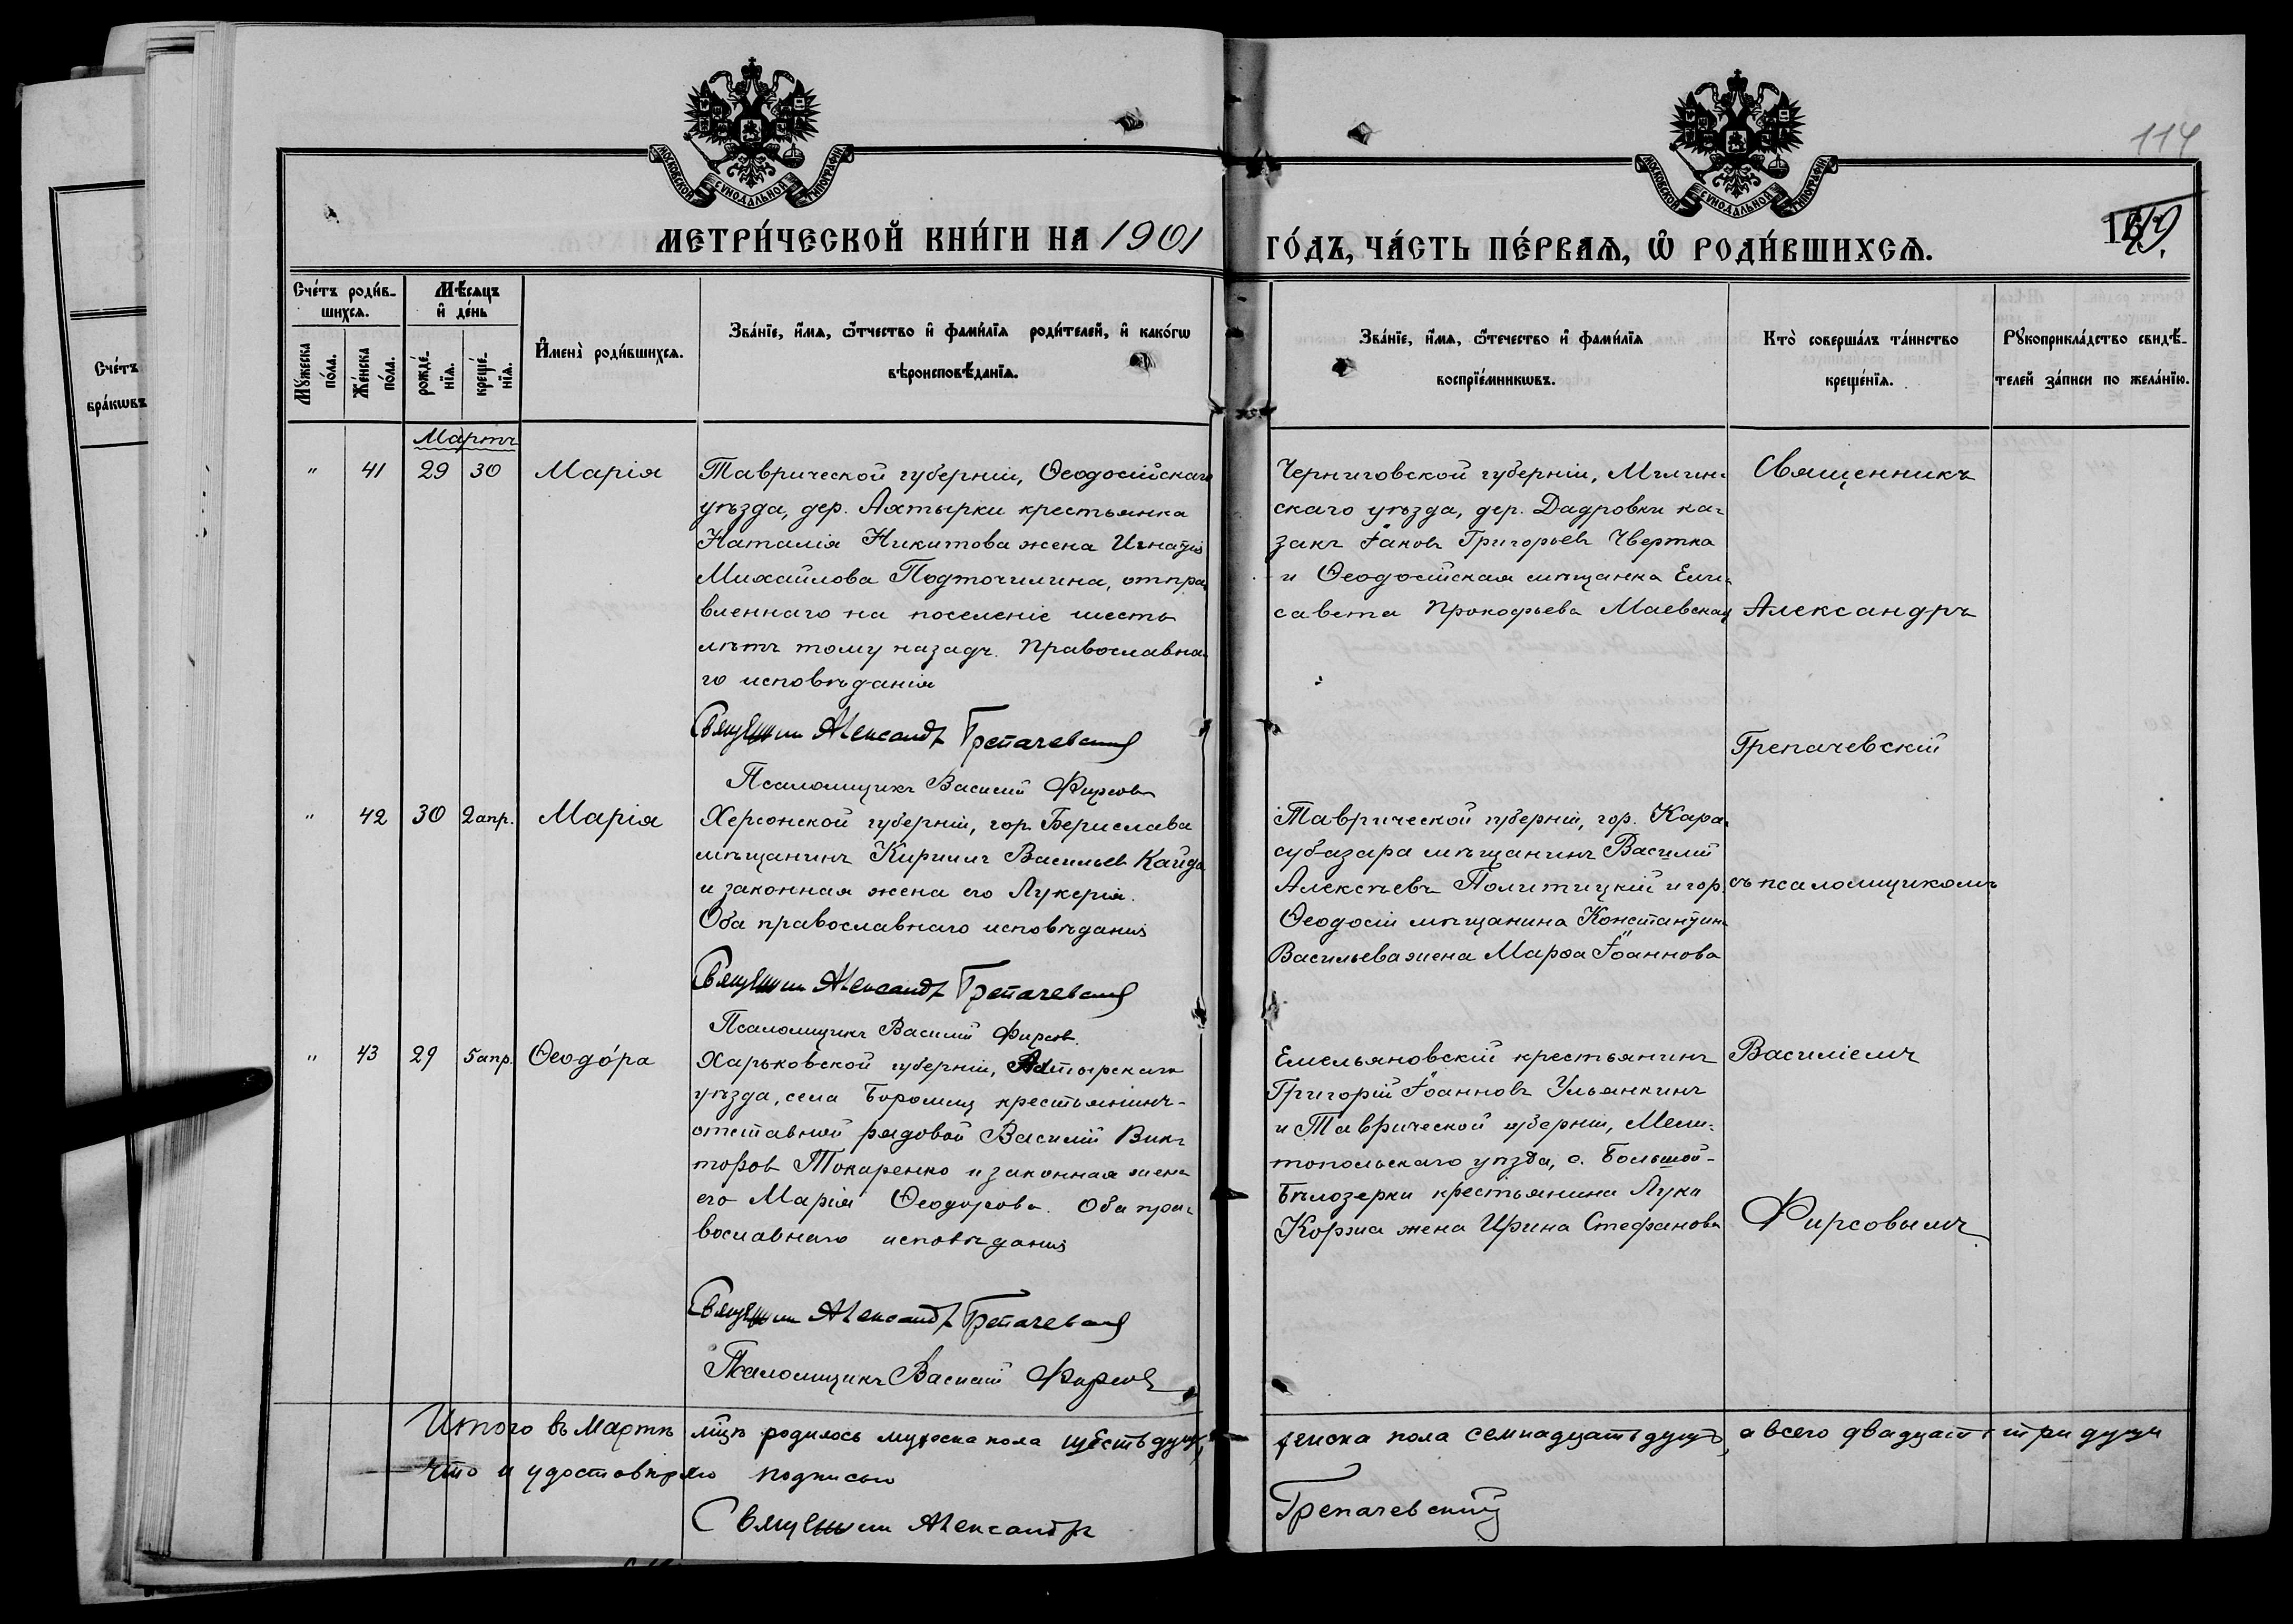 114
МОСКОВСКОЙ СѴНОДАЛЬНОЙ ТИПОГРАФІИ
МОСКОВСКОЙ СѴНОДАЛЬНОЙ ТИПОГРАФІИ
МЕТРИ́ЧЕСКОЙ КНИ́ГИ НА 1901 ГО́ДЪ, ЧА́СТЬ ПЕ́РВАѦ, Ѡ҆ РОДИ́ВШИХСѦ.
Сче́тъ
бра́кωвъ
Сче́тъ роди́в-
шихсѧ.
Мꙋ́жеска
по́ла.
Же́нска
по́ла.
Мѣ́сѧцъ
и҆ де́нь
рожде́-
нїѧ.
креще́-
нїѧ.
И҆мена̀ роди́вшихсѧ.
Зва́нїе, и҆́мѧ, ѻ҆́тчество и҆ фами́лїѧ роди́телей, и҆ како́гω
вѣроисповѣ́данїѧ.
Зва́нїе, и҆́мѧ, ѻ҆́течество и҆ фами́лїѧ
воспрїе́мникωвъ.
Кто̀ соверша́лъ та́инство
креще́нїѧ.
Рꙋкоприкла́дство свидѣ́-
телей за́писи по жела́нїю.
Мартъ
" 41 29 30 Марія
Таврической губерніи, Ѳеодосійскаго
уѣзда, дер. Ахтырки крестьянка
Наталія Никитова жена Игнатія
Михайлова Подточилина, отпра-
вленнаго на поселеніе шесть
лѣтъ тому назадъ. Православна-
го исповѣданія
Александръ Грепачевскій
Псаломщикъ Василій Фирсовъ
Черниговской губерніи, Мглин-
скаго уѣзда, дер. Дадровки ка-
закъ Іаковъ Григорьевъ Чвертка
и Ѳеодосійская мѣщанка Ели-
савета Прокофьева Маевская
Священникъ
Александръ
Грепачевскій
" 42 30 2 апр. Марія
Херсонской губерніи, гор. Берислава
мѣщанинъ Кириллъ Васильевъ Кайда
и законная жена его Лукерія.
Оба православнаго исповѣданія
Александръ Грепачевскій
Псаломщикъ Василій Фирсовъ.
Таврической губерніи, гор. Кара-
субазара мѣщанинъ Василій
Алексѣевъ Политицкій и гор.
Ѳеодосіи мѣщанина Константина
Васильева жена Марѳа Іоаннова
съ псаломщикомъ
" 43 29 5 апр. Ѳеодо́ра
Харьковской губерніи,
уѣзда, села Боромли крестьянинъ-
отставной рядовой Василій Вик-
торовъ Токаренко и законная жена
его Марія Ѳеодорова. Оба пра-
вославнаго исповѣданія
Александръ Грепачевскій
Псаломщикъ Василій Фирсовъ
Емельяновскій крестьянинъ
Григорій Іоанновъ Ульянкинъ
и Таврической губерніи, Мели-
топольскаго уѣзда, с. Большой-
Бѣлозерки крестьянина Луки
Коржа жена Ирина Стефанова
Василіемъ
Фирсовымъ
Итого въ Мартѣ мцѣ родилось мужеска пола шесть душъ, женска пола семнадцать душъ, а всего двадцать три души
что и удостовѣряю подписью
Александръ Грепачевскій